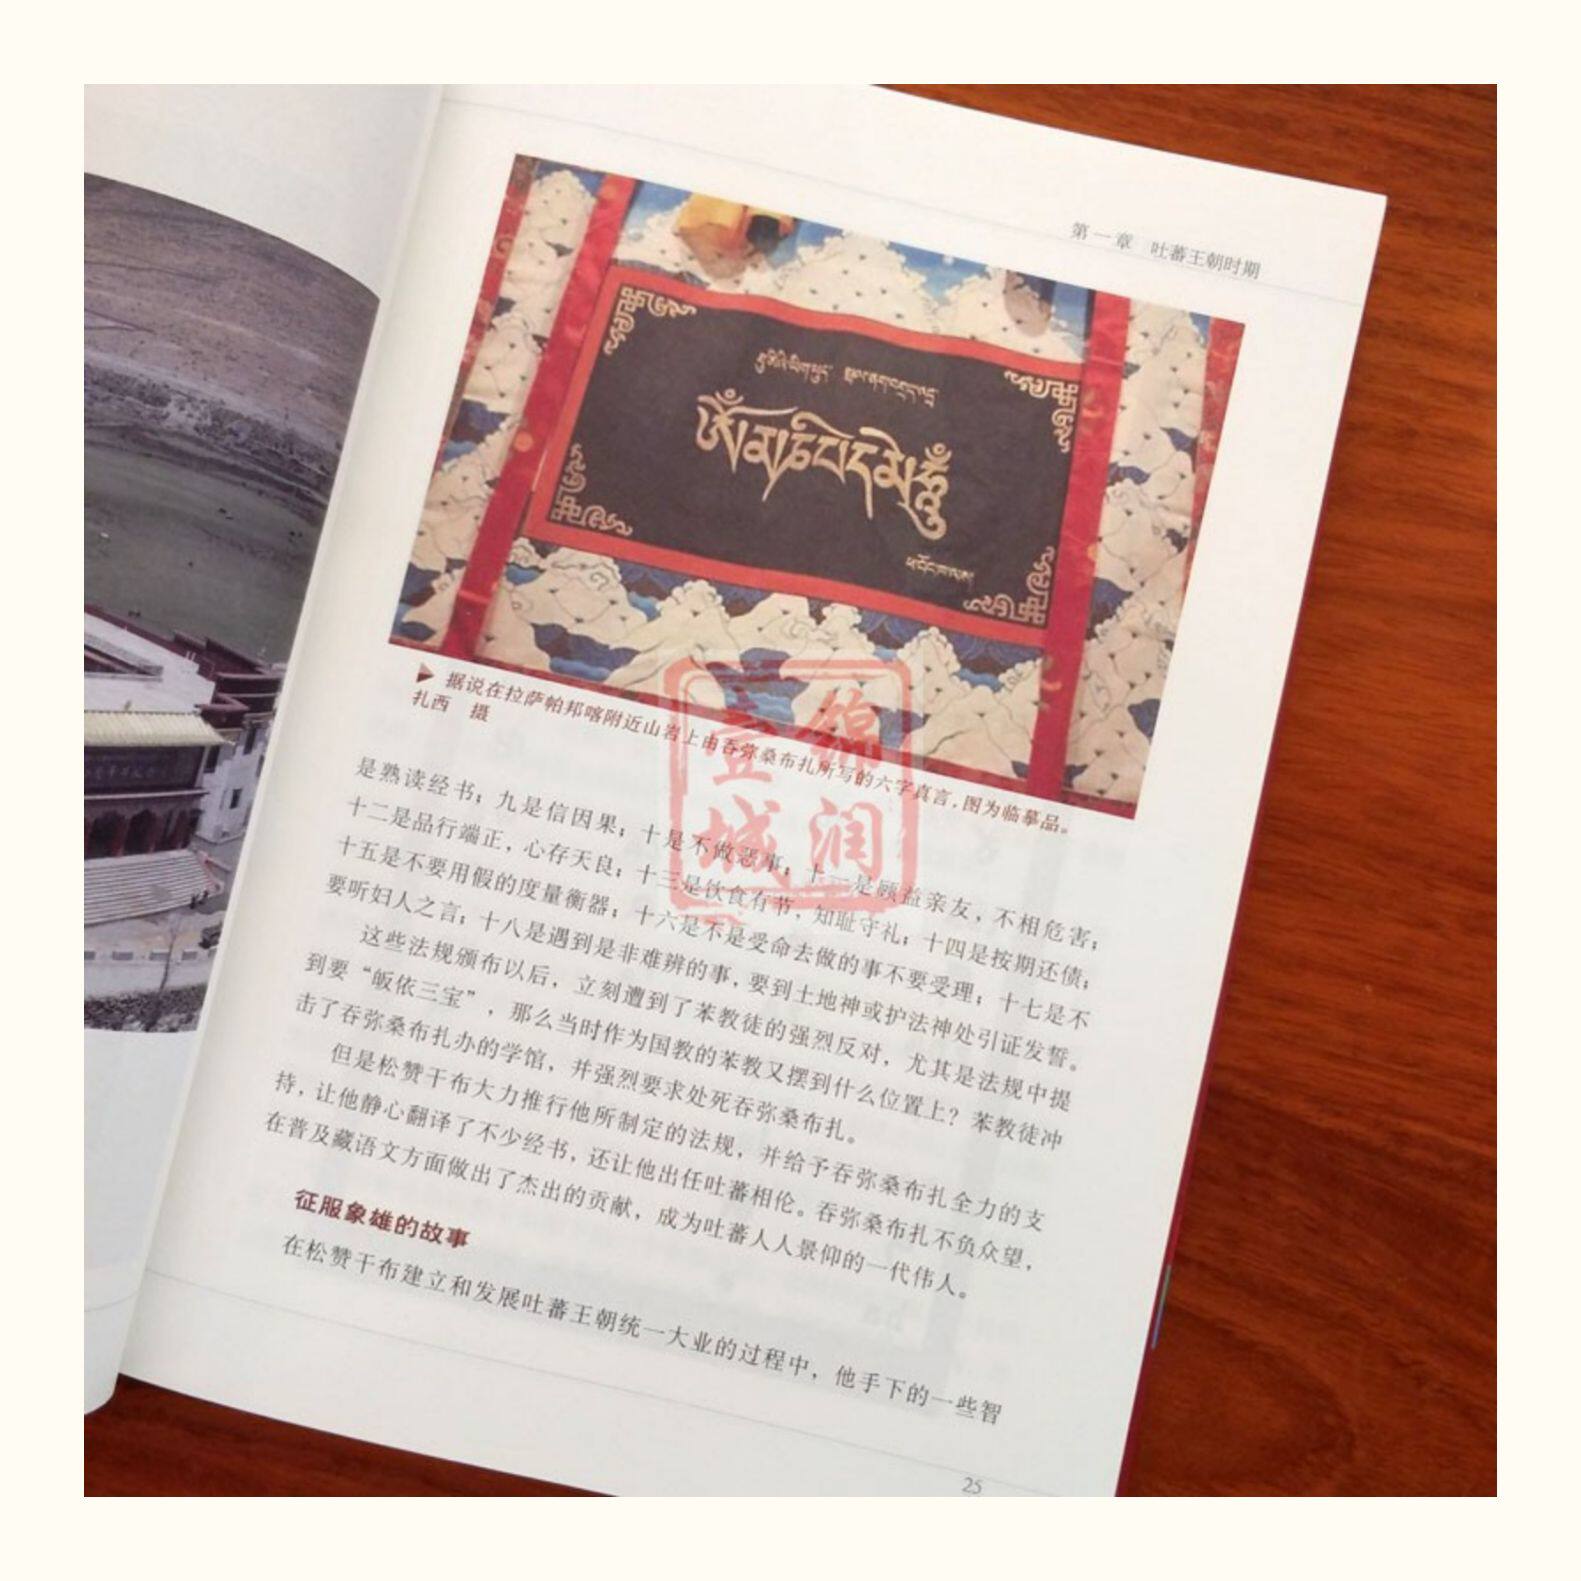 第一章 吐蕃王朝时期
ༀམཎིཔདྨེཧཱུྃ
▶ 据说在拉萨帕邦喀附近山岩上由吞弥桑布扎所写的六字真言,图为临摹品。
扎西 摄
是熟读经书;九是信因果;十是不做恶事;十一是顾益亲友,不相危害;
十二是品行端正,心存天良;十三是饮食有节,知耻守礼;十四是按期还债;
十五是不要用假的度量衡器;十六是不是受命去做的事不要受理;十七是不
要听妇人之言;十八是遇到是非难辨的事,要到土地神或护法神处引证发誓。
这些法规颁布以后,立刻遭到了苯教徒的强烈反对,尤其是法规中提
到要“皈依三宝”,那么当时作为国教的苯教又摆到什么位置上?苯教徒冲
击了吞弥桑布扎办的学馆,并强烈要求处死吞弥桑布扎。
但是松赞干布大力推行他所制定的法规,并给予吞弥桑布扎全力的支
持,让他静心翻译了不少经书,还让他出任吐蕃相伦。吞弥桑布扎不负众望,
在普及藏语文方面做出了杰出的贡献,成为吐蕃人人景仰的一代伟人。
征服象雄的故事
在松赞干布建立和发展吐蕃王朝统一大业的过程中,他手下的一些智
25
锦润
壹城